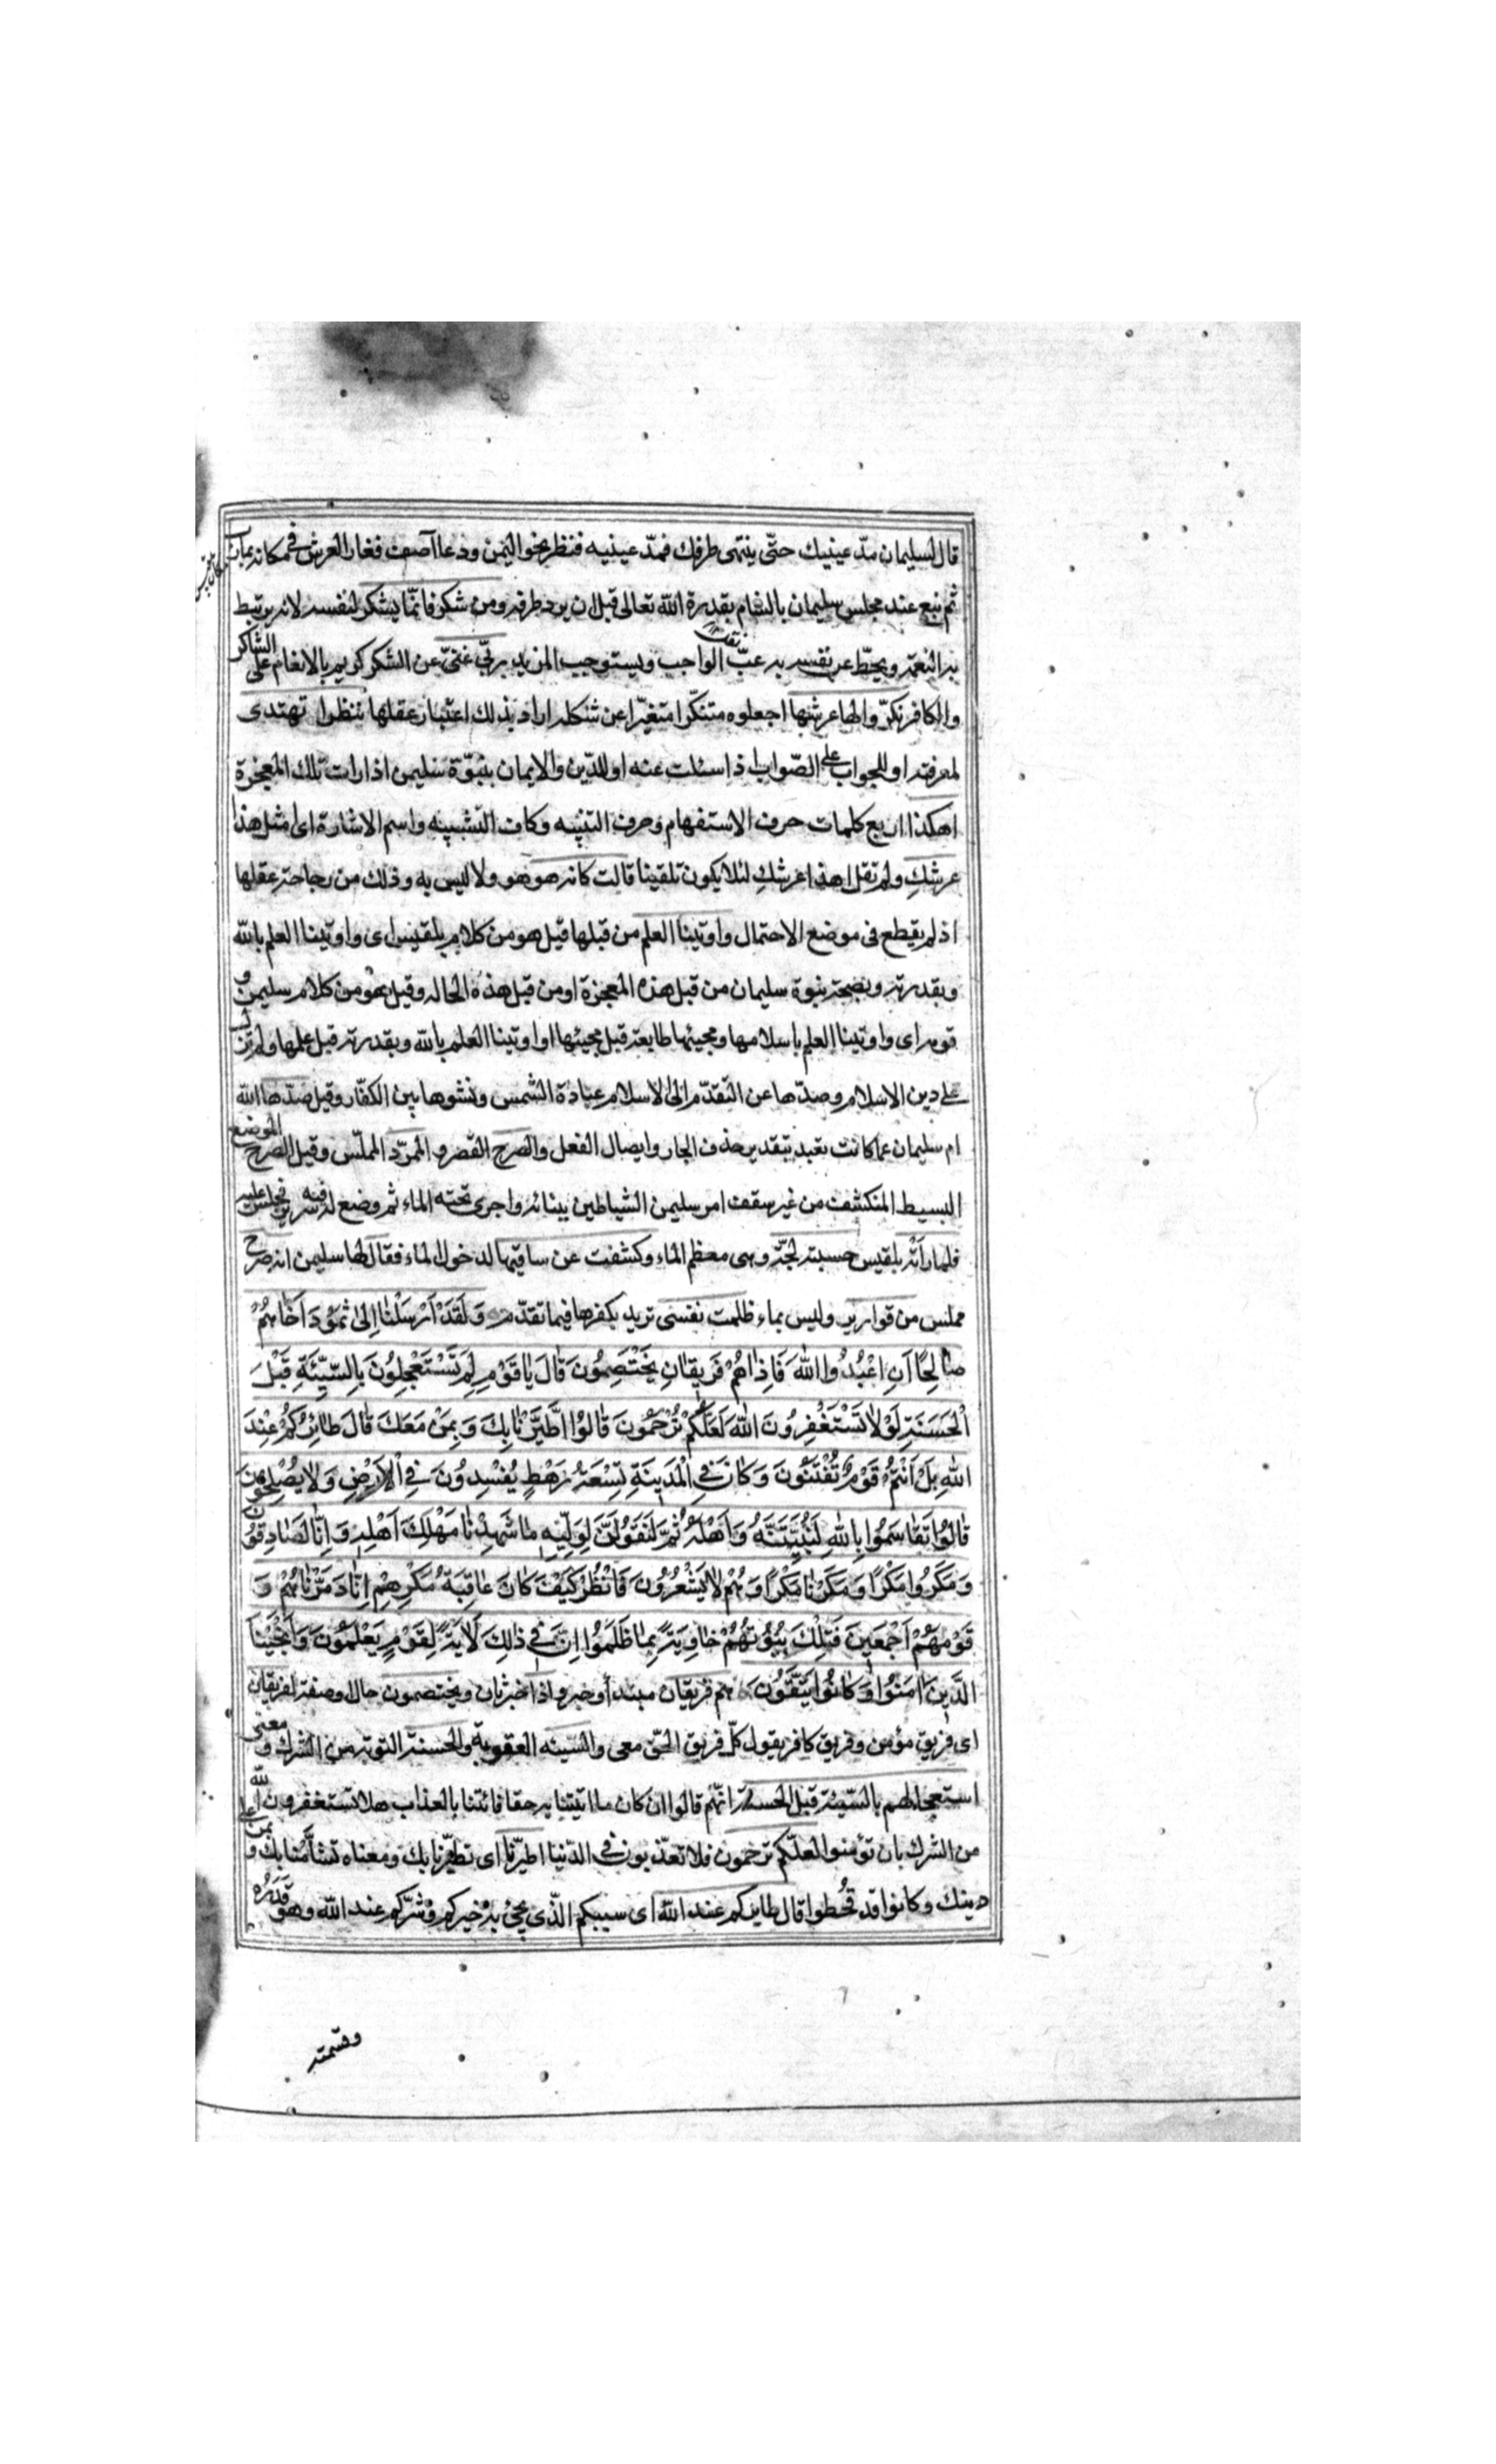 قال لسليمان مدّ عينيك حتّى ينتهى طرفك فمدّ عينيه فنظر نحو اليمن ودعا آصف فغار العرش فى مكانه بمأرب
ثم نبع عند مجلس سليمان بالشام بقدرة الله تعالى قبل ان يرد طرفه ومن شكر فانّما يشكر لنفسه لانه يرتبط
به النعمة ويحطّ عن نفسه به عبّ الواجب ويستوجب المزيد ربّى غنىّ عن الشكر كريم بالانعام على الشاكر
والكافر نكرّوا لها عرشها اجعلوه متنكّرا متغيّرا عن شكله اراد بذلك اعتبار عقلها ننظر ا تهتدى
لمعرفته او للجواب على الصّواب اذا سئلت عنه او للدّين والايمان بنبوّة سليمن اذا رات تلك المعجزة
اهكذا اربع كلمات حرف الاستفهام وحرف التنبيه وكاف التشبيه واسم الاشارة اى امثل هذا
عرشكِ ولم تقل اهذا عرشكِ لئلا يكون تلقينا قالت كانه هو هو ولا ليس به وذلك من رجاحة عقلها
اذ لم يقطع فى موضع الاحتمال واوتينا العلم من قبلها قيل هو من كلام بلقيس اى واوتينا العلم بالله
وبقدرته وبصحة نبوة سليمان من قبل هذه المعجزة او من قبل هذه الحاله وقيل هو من كلام سليمن و
قومه اى واوتينا العلم باسلامها ومجيئها طايعة قبل مجيئها او اوتينا العلم بالله وبقدرته قبل علمها ولم نزل
على دين الاسلام وصدّها عن التقدّم الى الاسلام عبادة الشمس ونشوها بين الكفّار وقيل صدّها الله
ام سليمان عما كانت تعبد بتقدير حذف الجار وايصال الفعل والصرح القصر و الممرّد المملّس وقيل الصرح الموضع
البسيط المنكشف من غير سقف امر سليمن الشياطين ببنائه واجرى تحته الماء ثم وضع له فيه سرير فجلس عليه
فلما رأته بلقيس حسبته لجّة وهى معظم الماء وكشفت عن ساقيها لدخول الماء فقال لها سليمن انه صرح
مملس من قوارير وليس بماء ظلمت نفسى تريد بكفرها فيما تقدّم وَلَقَدْ اَرْسَلْنٰا اِلىٰ ثَمُودَ اَخٰاهُمْ
صٰالِحًا اَنِ اعْبُدُوا اللّٰهَ فَاِذٰا هُمْ فَرِيقٰانِ يَخْتَصِمُونَ قٰالَ يٰا قَوْمِ لِمَ تَسْتَعْجِلُونَ بِالسَّيِّئَةِ قَبْلَ
الْحَسَنَةِ لَوْلٰا تَسْتَغْفِرُونَ اللّٰهَ لَعَلَّكُمْ تُرْحَمُونَ قٰالُوا اطَّيَّرْنٰا بِكَ وَبِمَنْ مَعَكَ قٰالَ طٰائِرُكُمْ عِنْدَ
اللّٰهِ بَلْ اَنْتُمْ قَوْمٌ تُفْتَنُونَ وَكٰانَ فِى الْمَدِينَةِ تِسْعَةُ رَهْطٍ يُفْسِدُونَ فِى الْاَرْضِ وَلٰا يُصْلِحُونَ
قٰالُوا تَقٰاسَمُوا بِاللّٰهِ لَنُبَيِّتَنَّهُ وَاَهْلَهُ ثُمَّ لَنَقُولَنَّ لِوَلِيِّهِ مٰا شَهِدْنٰا مَهْلِكَ اَهْلِهِ وَاِنّٰا لَصٰادِقُونَ
وَمَكَرُوا مَكْرًا وَمَكَرْنٰا مَكْرًا وَهُمْ لٰا يَشْعُرُونَ فَانْظُرْ كَيْفَ كٰانَ عٰاقِبَةُ مَكْرِهِمْ اَنّٰا دَمَّرْنٰاهُمْ وَ
قَوْمَهُمْ اَجْمَعِينَ فَتِلْكَ بُيُوتُهُمْ خٰاوِيَةً بِمٰا ظَلَمُوا اِنَّ فِى ذٰلِكَ لَاٰيَةً لِقَوْمٍ يَعْلَمُونَ وَاَنْجَيْنَا
الَّذِينَ اٰمَنُوا وَكٰانُوا يَتَّقُونَ هم فريقان مبتدأ وخبر و اذا خبر ثان ويختصمون حال او صفة لفريقان
اى فريق مؤمن وفريق كافر يقول كلّ فريق الحقّ معى والسّيئه العقوبة والحسنة التوبة من الشرك و معنى
استعجالهم بالسّيئة قبل الحسنة انّهم قالوا ان كان ما اتيتنا به حقا فائتنا بالعذاب هلا تستغفرون الله
من الشرك بان تؤمنوا لعلّكم ترحمون فلا تعذّبون فى الدّنيا اطيّرنا اى تطيّرنا بك ومعناه تشأّمنا بك و بمن على
دينك وكانوا قد قُحطوا قال طايركم عند الله اى سببكم الّذى يجئ به خيركم وشرّكم عند الله وهو قَدَرُه
وقسمته